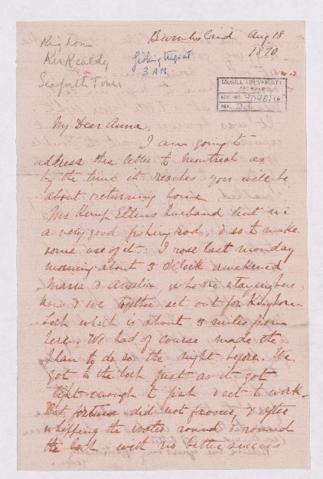 Kinghorn
Kirkcaldy
Seafield Tower
Fishing
3 AM
Burntisland Aug 18
1890
McGILL UNIVERSITY
ARCHIVES
ACC. NO.
REF.
My Dear Anna,
I am going to
address this letter to Montreal as
by the time it reaches you will be
about returning home
Mrs Kemp Ellen's husband lent me
a very good fishing rod, & so to make
some use of it. I rose last Monday
morning about 3 O'Clock awakened
Maria & who are staying here
now & we together set out for Kinghorn
Loch which is about 3 miles from
here. We had of course made the
plan to do so the night before. We
got to the loch just as it got
light enough to fish & set to work.
But fortune did not favour, & after
whipping the water round & round
the loch with no better success